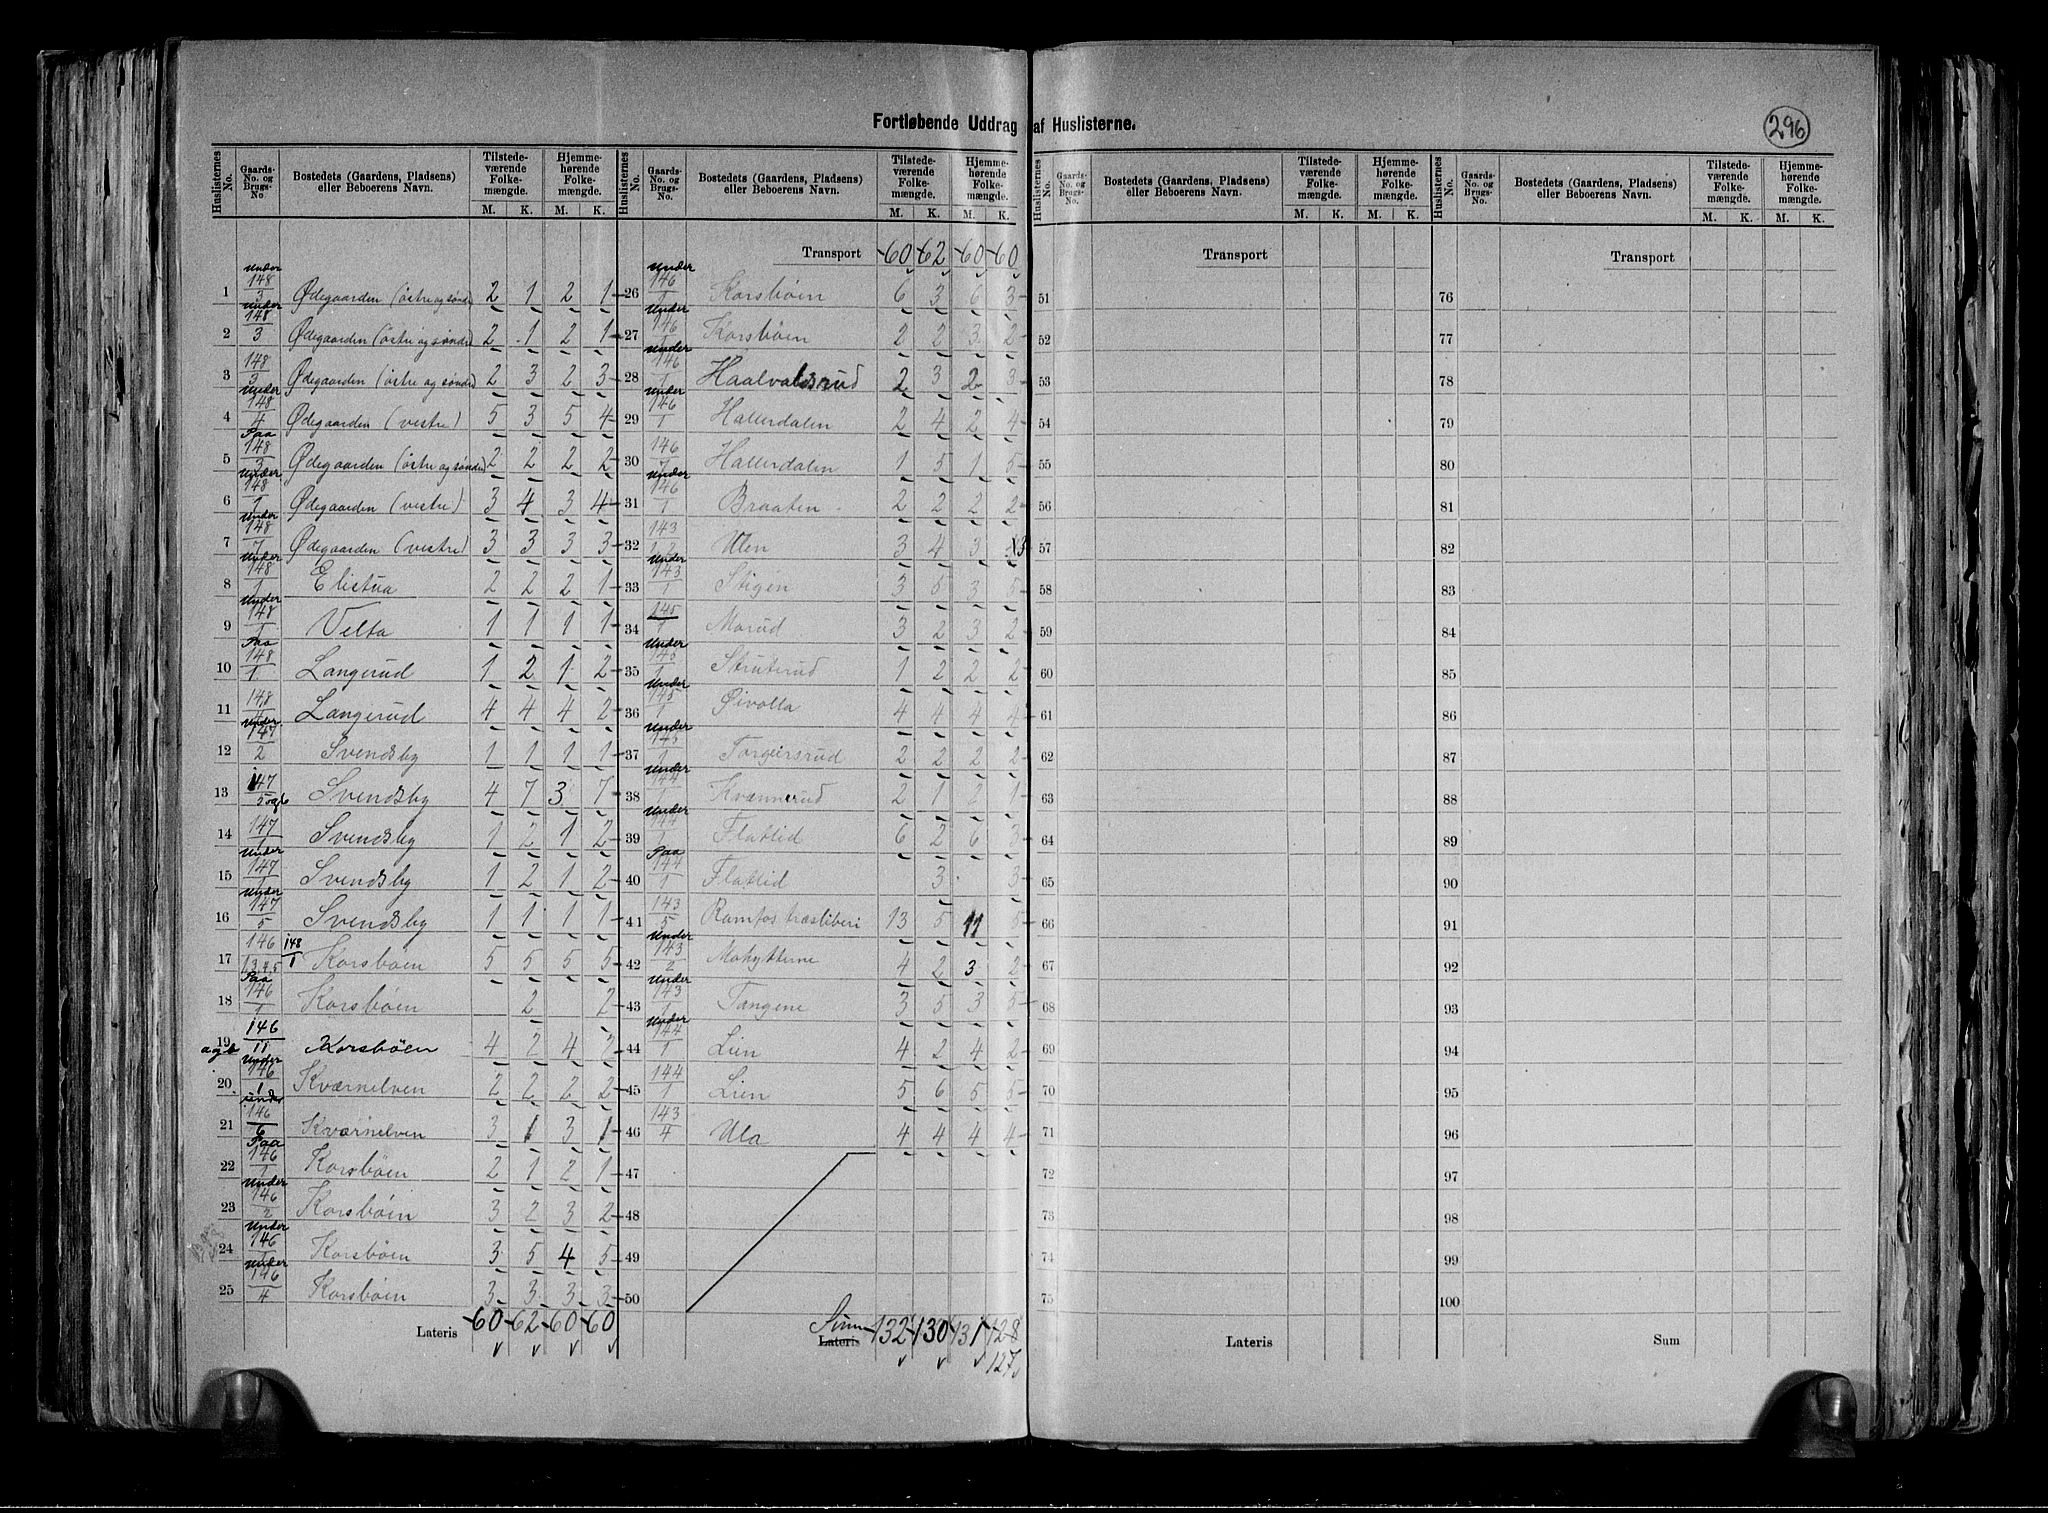 Fortløbende Uddrag af Huslisterne.
296
Huslisternes No. | Gaards-No. og Brugs-No. | Bostedets (Gaardens, Pladsens) eller Beboerens Navn. | Tilstedeværende Folkemængde. M. K. | Hjemmehørende Folkemængde. M. K.
1 Under 148/3 Ødegaarden (östre og söndre) 2 1 2 1
2 Under 148/3 Ødegaarden (östre og söndre) 2 1 2 1
3 148/3 Ødegaarden (östre og söndre) 2 3 2 3
4 Under 148/4 Ødegaarden (vestre) 5 3 5 4
5 Paa 148/3 Ødegaarden (östre og söndre) 2 2 2 2
6 Under 148/1 Ødegaarden (vestre) 3 4 3 4
7 Under 148/7 Ødegaarden (vestre) 3 3 3 3
8 Under 148/1 Elistua 2 2 2 1
9 Under 148/1 Velta 1 1 1 1
10 Paa 148/1 Langerud 1 2 1 2
11 148/4 Langerud 4 4 4 2
12 Under 147/2 Svendsby 1 1 1 1
13 147/5 og 6 Svendsby 4 7 3 7
14 147/1 Svendsby 1 2 1 2
15 Under 147/1 Svendsby 1 2 1 2
16 Under 147/5 Svendsby 1 1 1 1
17 146/1,3,4,5 148/1 Korsböen 5 5 5 5
18 Paa 146/1 Korsböen 2 2
19 a og b 146/11 Korsböen 4 2 4 2
20 Under 146/1 Kværnelven 2 2 2 2
21 under 146/6 Kværnelven 3 1 3 1
22 Paa 146/1 Korsböen 2 1 2 1
23 Under 146/2 Korsböen 3 2 3 2
24 Under 146/1 Korsböen 3 5 4 5
25 Under 146/4 Korsböen 3 3 3 3
Lateris 60 62 60 60
Huslisternes No. | Gaards-No. og Brugs-No. | Bostedets (Gaardens, Pladsens) eller Beboerens Navn. | Tilstedeværende Folkemængde. M. K. | Hjemmehørende Folkemængde. M. K.
Transport 60 62 60 60
26 Under 146/1 Korsböen 6 3 6 3
27 Under 146/1 Korsböen 2 2 3 2
28 Under 146/1 Haalvaldsrud 2 3 2 3
29 Under 146/1 Hallerdalen 2 4 2 4
30 146/7 Hallerdalen 1 5 1 5
31 Under 146/1 Braaten 2 2 2 2
32 143/1,2 Ulen 3 4 3 3
33 Under 143/1 Stigen 3 5 3 5
34 145/1 Morud 3 2 3 2
35 Under 145/1 Struterud 1 2 2 2
36 Under 145/1 Øivolla 4 4 4 4
37 Under 145/1 Torgeirsrud 2 2 2 2
38 Under 144/1 Kvannerud 2 1 2 1
39 Under 144/1 Flattid 6 2 6 3
40 Paa 144/1 Flattid 3 3
41 143/5 Ramfos træsliberi 13 5 11 5
42 Under 143/2 Mohytterne 4 2 3 2
43 Under 143/1 Tangene 3 5 3 5
44 Under 144/1 Lien 4 2 4 2
45 144/1 Lien 5 6 5 5
46 143/4 Ula 4 4 4 4
47
48
49
50
Sum Lateris 132 130 131 128
127
Huslisternes No. | Gaards-No. og Brugs-No. | Bostedets (Gaardens, Pladsens) eller Beboerens Navn. | Tilstedeværende Folkemængde. M. K. | Hjemmehørende Folkemængde. M. K.
Transport
51
52
53
54
55
56
57
58
59
60
61
62
63
64
65
66
67
68
69
70
71
72
73
74
75
Lateris
Huslisternes No. | Gaards-No. og Brugs-No. | Bostedets (Gaardens, Pladsens) eller Beboerens Navn. | Tilstedeværende Folkemængde. M. K. | Hjemmehørende Folkemængde. M. K.
Transport
76
77
78
79
80
81
82
83
84
85
86
87
88
89
90
91
92
93
94
95
96
97
98
99
100
Sum